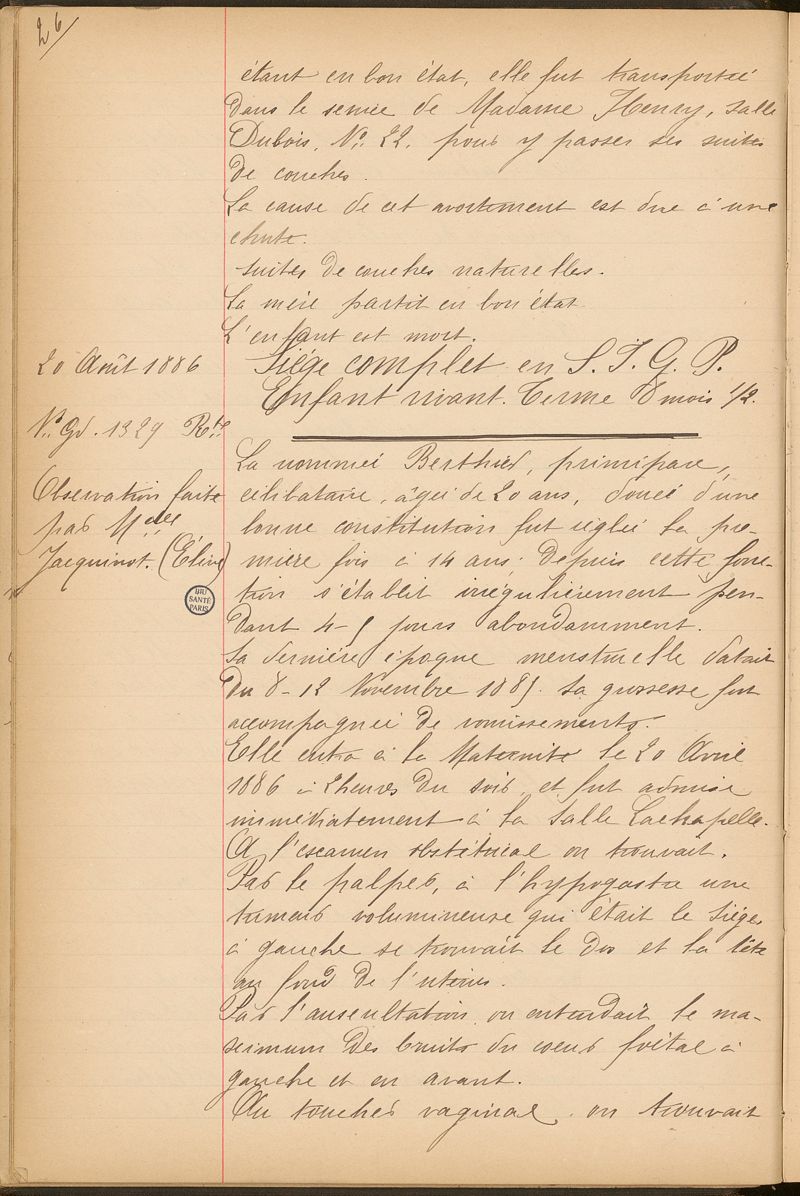 26
étant en bon état, elle fut transportée
dans le service de Madame Henry, salle
Dubois, No. 22. pour y passer ses suites
de couches.
La cause de cet avortement est due à une
chute.
suites de couches naturelles.
La mère partit en bon état
L'enfant est mort.
20 Août 1886
Siége complet en S. I. G. P.
Enfant vivant. Terme 8 mois 1/2.
No. Gd. 1329 Rte
Observation faite
par Melle
Jacquinot. (Elève)
BIU
SANTÉ
PARIS
La nommée Berthier, primipare,
célibataire, âgée de 20 ans, douée d'une
bonne constitution fut réglée la pre-
mière fois à 14 ans; depuis cette fonc-
tion s'établit irrégulièrement pen-
dant 4-5 jours abondamment.
Sa dernière époque menstruelle datait
du 8-12 Novembre 1885. Sa grossesse fut
accompagnée de vomissements.
Elle entra à la Maternité le 20 Avril
1886 à 2 heures du soir et fut admise
immédiatement à la salle Lachapelle.
A l'examen obstétrical on trouvait.
Par le palper, à l'hypogastre une
tumeur volumineuse qui était le Siége,
à gauche se trouvait le dos et la tête
au fond de l'utérus.
Par l'auscultation on entendait le ma-
ximum des bruits du coeur foétal à
gauche et en avant.
Au toucher vaginal, on trouvait